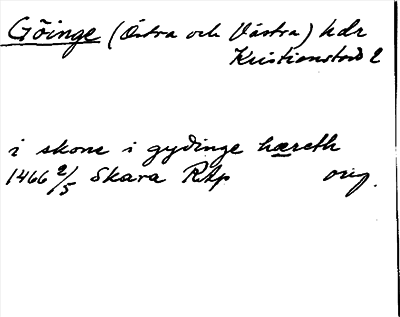 Göinge (Östra och Västra) hdr
Kristianstads l
i skone i gydinge hæreth
1466 2/5 Skara RAp orig.